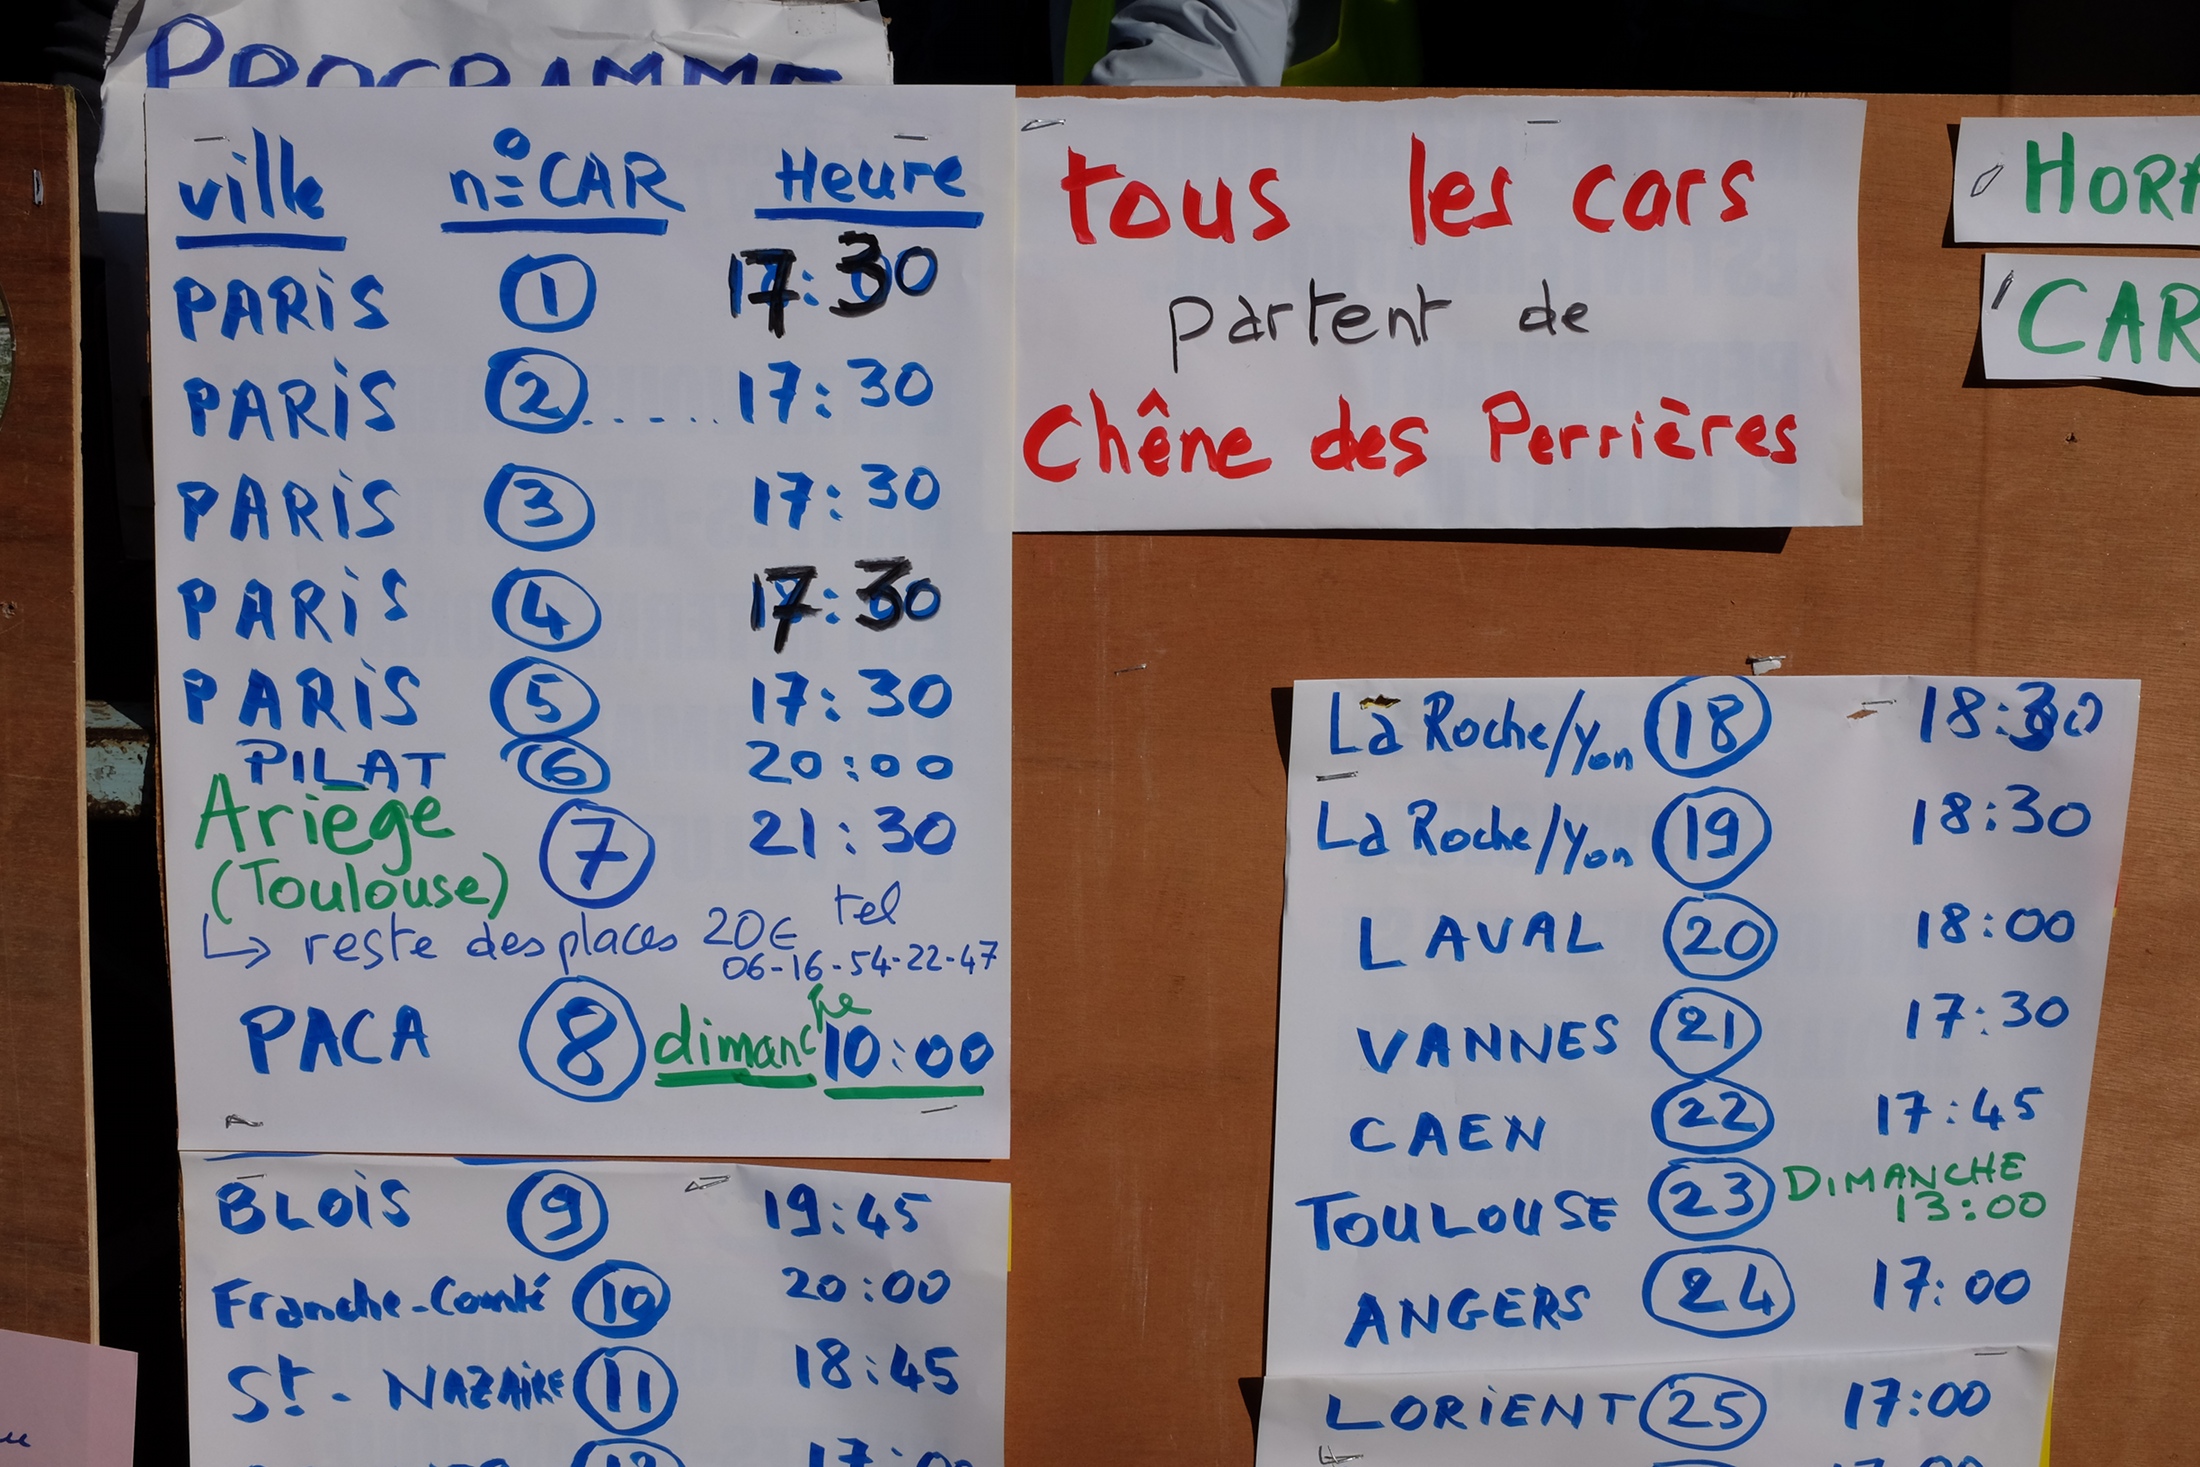 PROGRAMME
ville n° CAR Heure
PARiS 1 17:30
PARiS 2 ..... 17:30
PARiS 3 17:30
PARiS 4 17:30
PARiS 5 17:30
PILAT 6 20:00
Ariège 7 21:30
(Toulouse)
↳ reste des places 20€ tel
06-16-54-22-47
PACA 8 dimanche 10:00
BLOiS 9 19:45
Franche-Comté 10 20:00
St - NAZAiRE 11 18:45
12 17:00
tous les cars
partent de
Chêne des Perrières
HORA
CAR
La Roche/Yon 18 18:30
La Roche/Yon 19 18:30
LAVAL 20 18:00
VANNES 21 17:30
CAEN 22 17:45
TOULOUSE 23 DiMANCHE
13:00
ANGERS 24 17:00
LORiENT 25 17:00